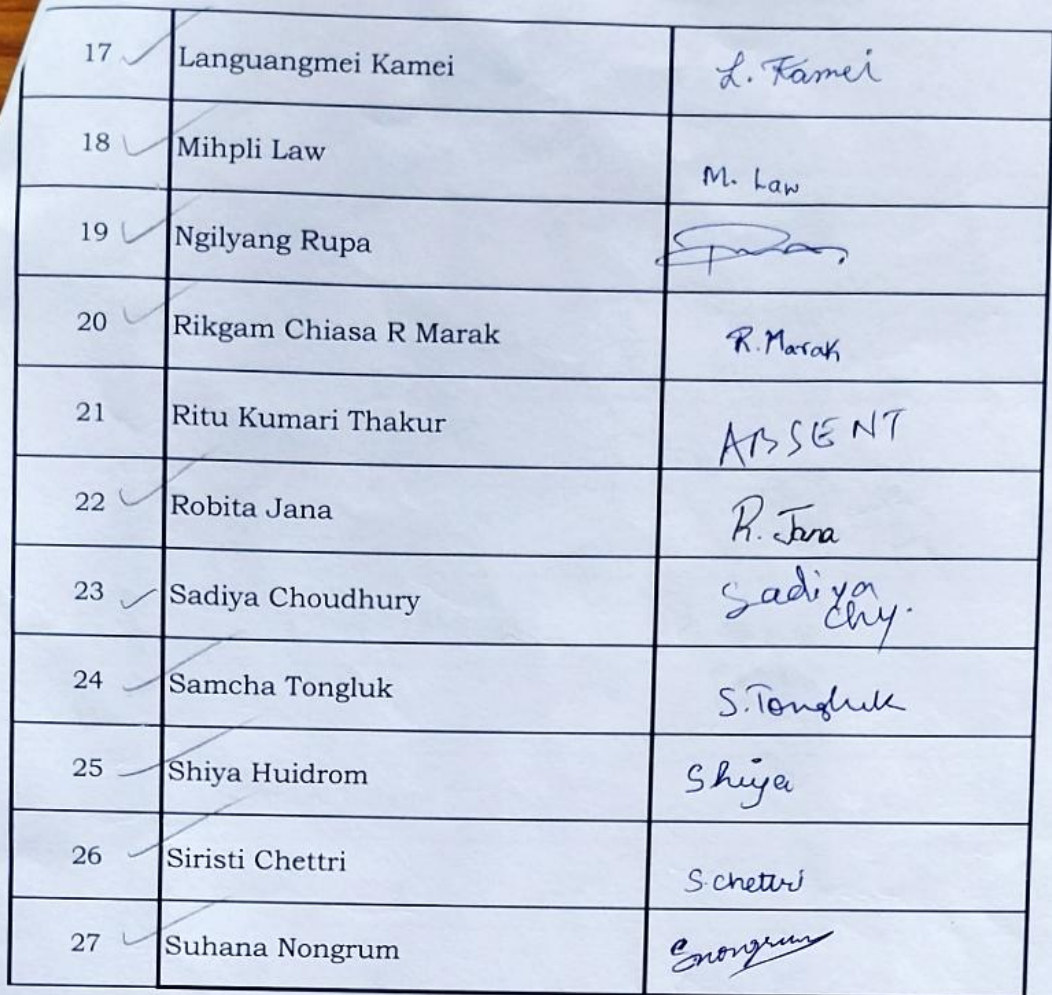 17 Languangmei Kamei L. Kamei
18 Mihpli Law M. Law
19 Ngilyang Rupa
20 Rikgam Chiasa R Marak R. Marak
21 Ritu Kumari Thakur ABSENT
22 Robita Jana R. Jana
23 Sadiya Choudhury Sadiya
Chy.
24 Samcha Tongluk S. Tongluk
25 Shiya Huidrom Shiya
26 Siristi Chettri S. Chettri
27 Suhana Nongrum Snongrum